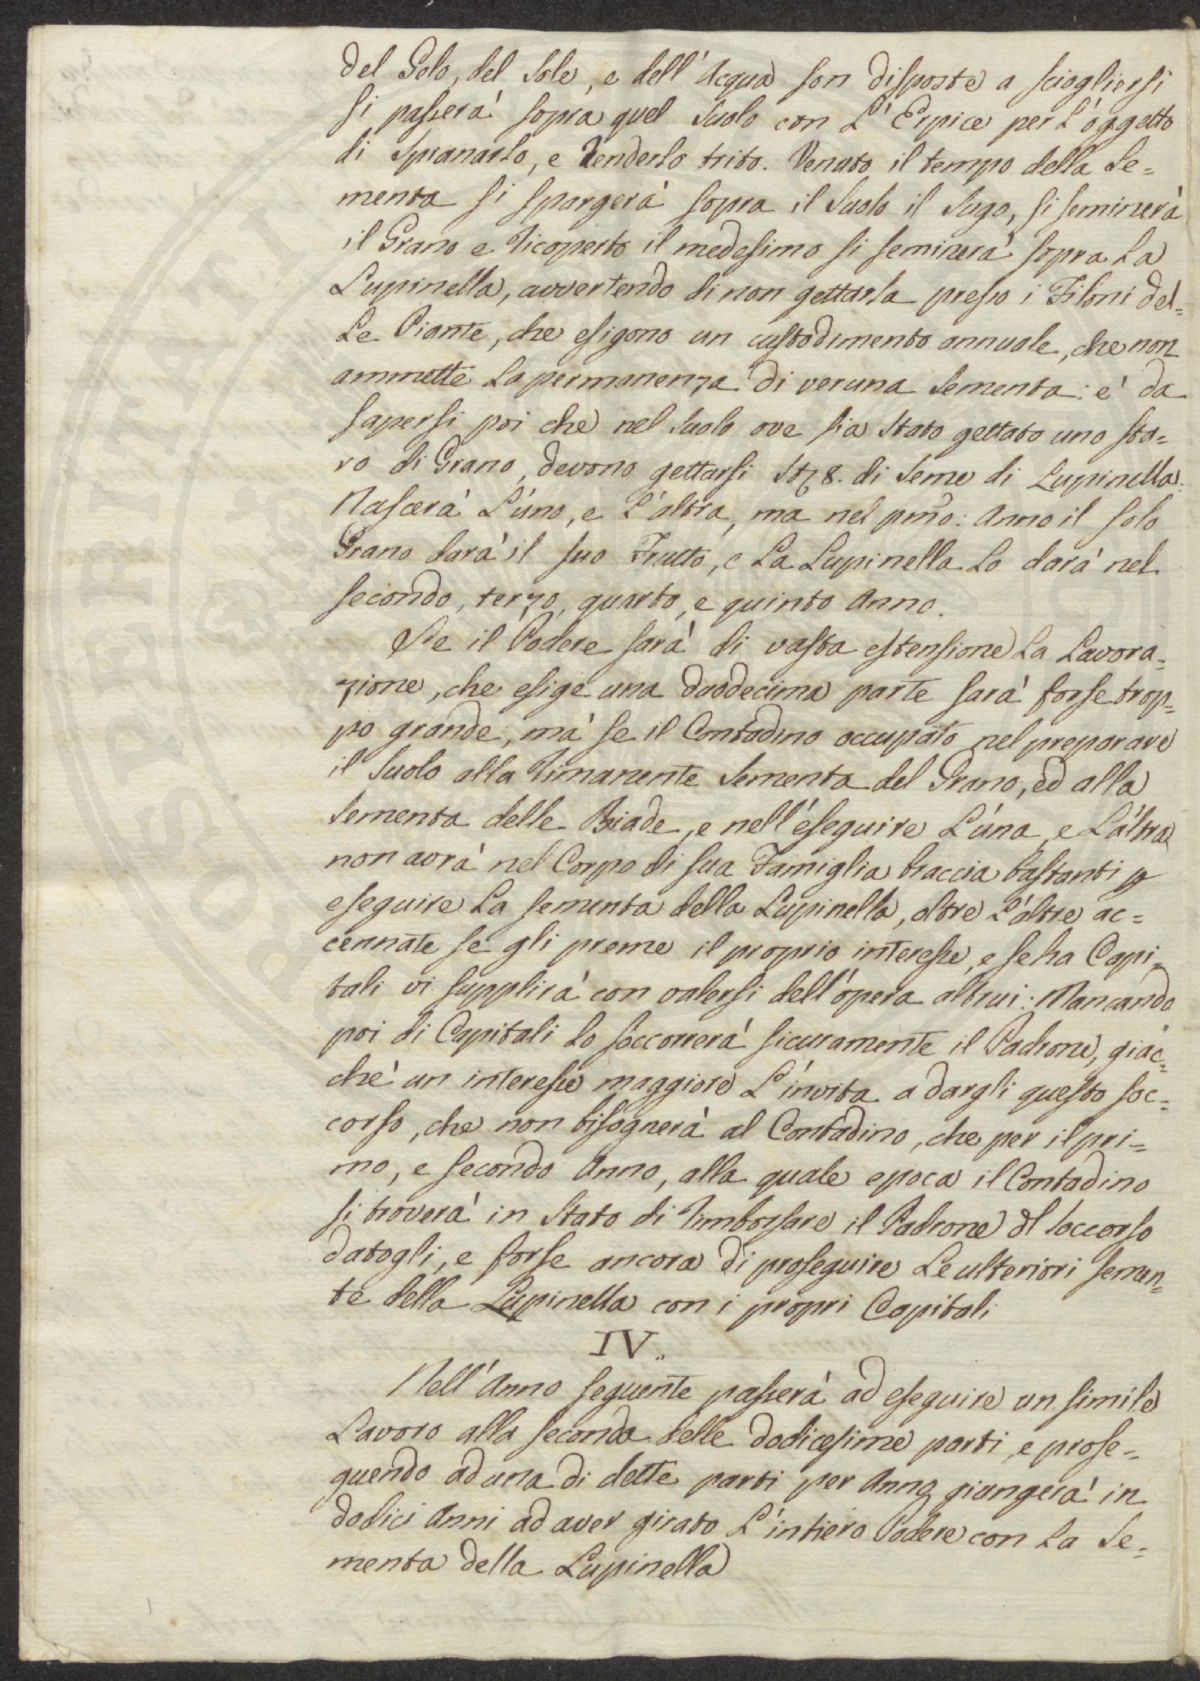 del Gelo, del Sole, e dell'Acqua son disposte a sciogliersi
si passerà sopra quel Suolo con L'Erpice per L'oggetto
di Spianarlo, e renderlo trito. Venuto il tempo della Se=
menta si spargerà sopra il Suolo il Sugo, si seminerà
il Grano e ricoperto il medesimo si seminerà sopra La
Lupinella, avvertendo di non gettarla presso i Filoni del=
Le Piante, che esigono un custodimento annuale, che non
ammette La permanenza di veruna Sementa: e' da
sapersi poi che nel Suolo ove sia Stato gettato uno sta=
ro di Grano, devono gettarsi 8. di Seme di Lupinella.
Nascerà L'uno, e L'altra, ma nel pmo: Anno il solo
Grano darà il suo Frutto, e La Lupinella Lo darà nel
secondo, terzo, quarto, e quinto Anno.
Se il Podere sarà di vasta estensione La Lavora=
zione, che esige una duodecima parte sarà forse trop=
po grande, mà se il Contadino occupato nel preparare
il Suolo alla rimanente Sementa del Grano, ed alla
Sementa delle Biade, e nell'eseguire L'una, e L'altra
non avrà nel Corpo di sua Famiglia braccia bastanti p
eseguire La sementa della Lupinella, oltre L'altre ac=
cennate se gli preme il proprio interesse, e se ha Capi=
tali vi supplirà con valersi dell'opera altrui: Mancando
poi di Capitali Lo soccorrerà sicuramente il Padrone, giac=
chè un interesse maggiore L'invita a dargli questo soc=
corso, che non bisognerà al Contadino, che per il pri=
mo, e secondo Anno, alla quale epoca il Contadino
si troverà in Stato di rimborsare il Padrone del Soccorso
datogli, e forse ancora di proseguire Le ulteriori semen=
te della Lupinella con i propri Capitali
IV.
Nell'Anno seguente passerà ad eseguire un simile
Lavoro alla seconda delle dodicesime parti, e prose=
guendo ad una di dette parti per Anno giungerà in
dodici Anni ad aver girato L'intiero Podere con La Se=
menta della Lupinella